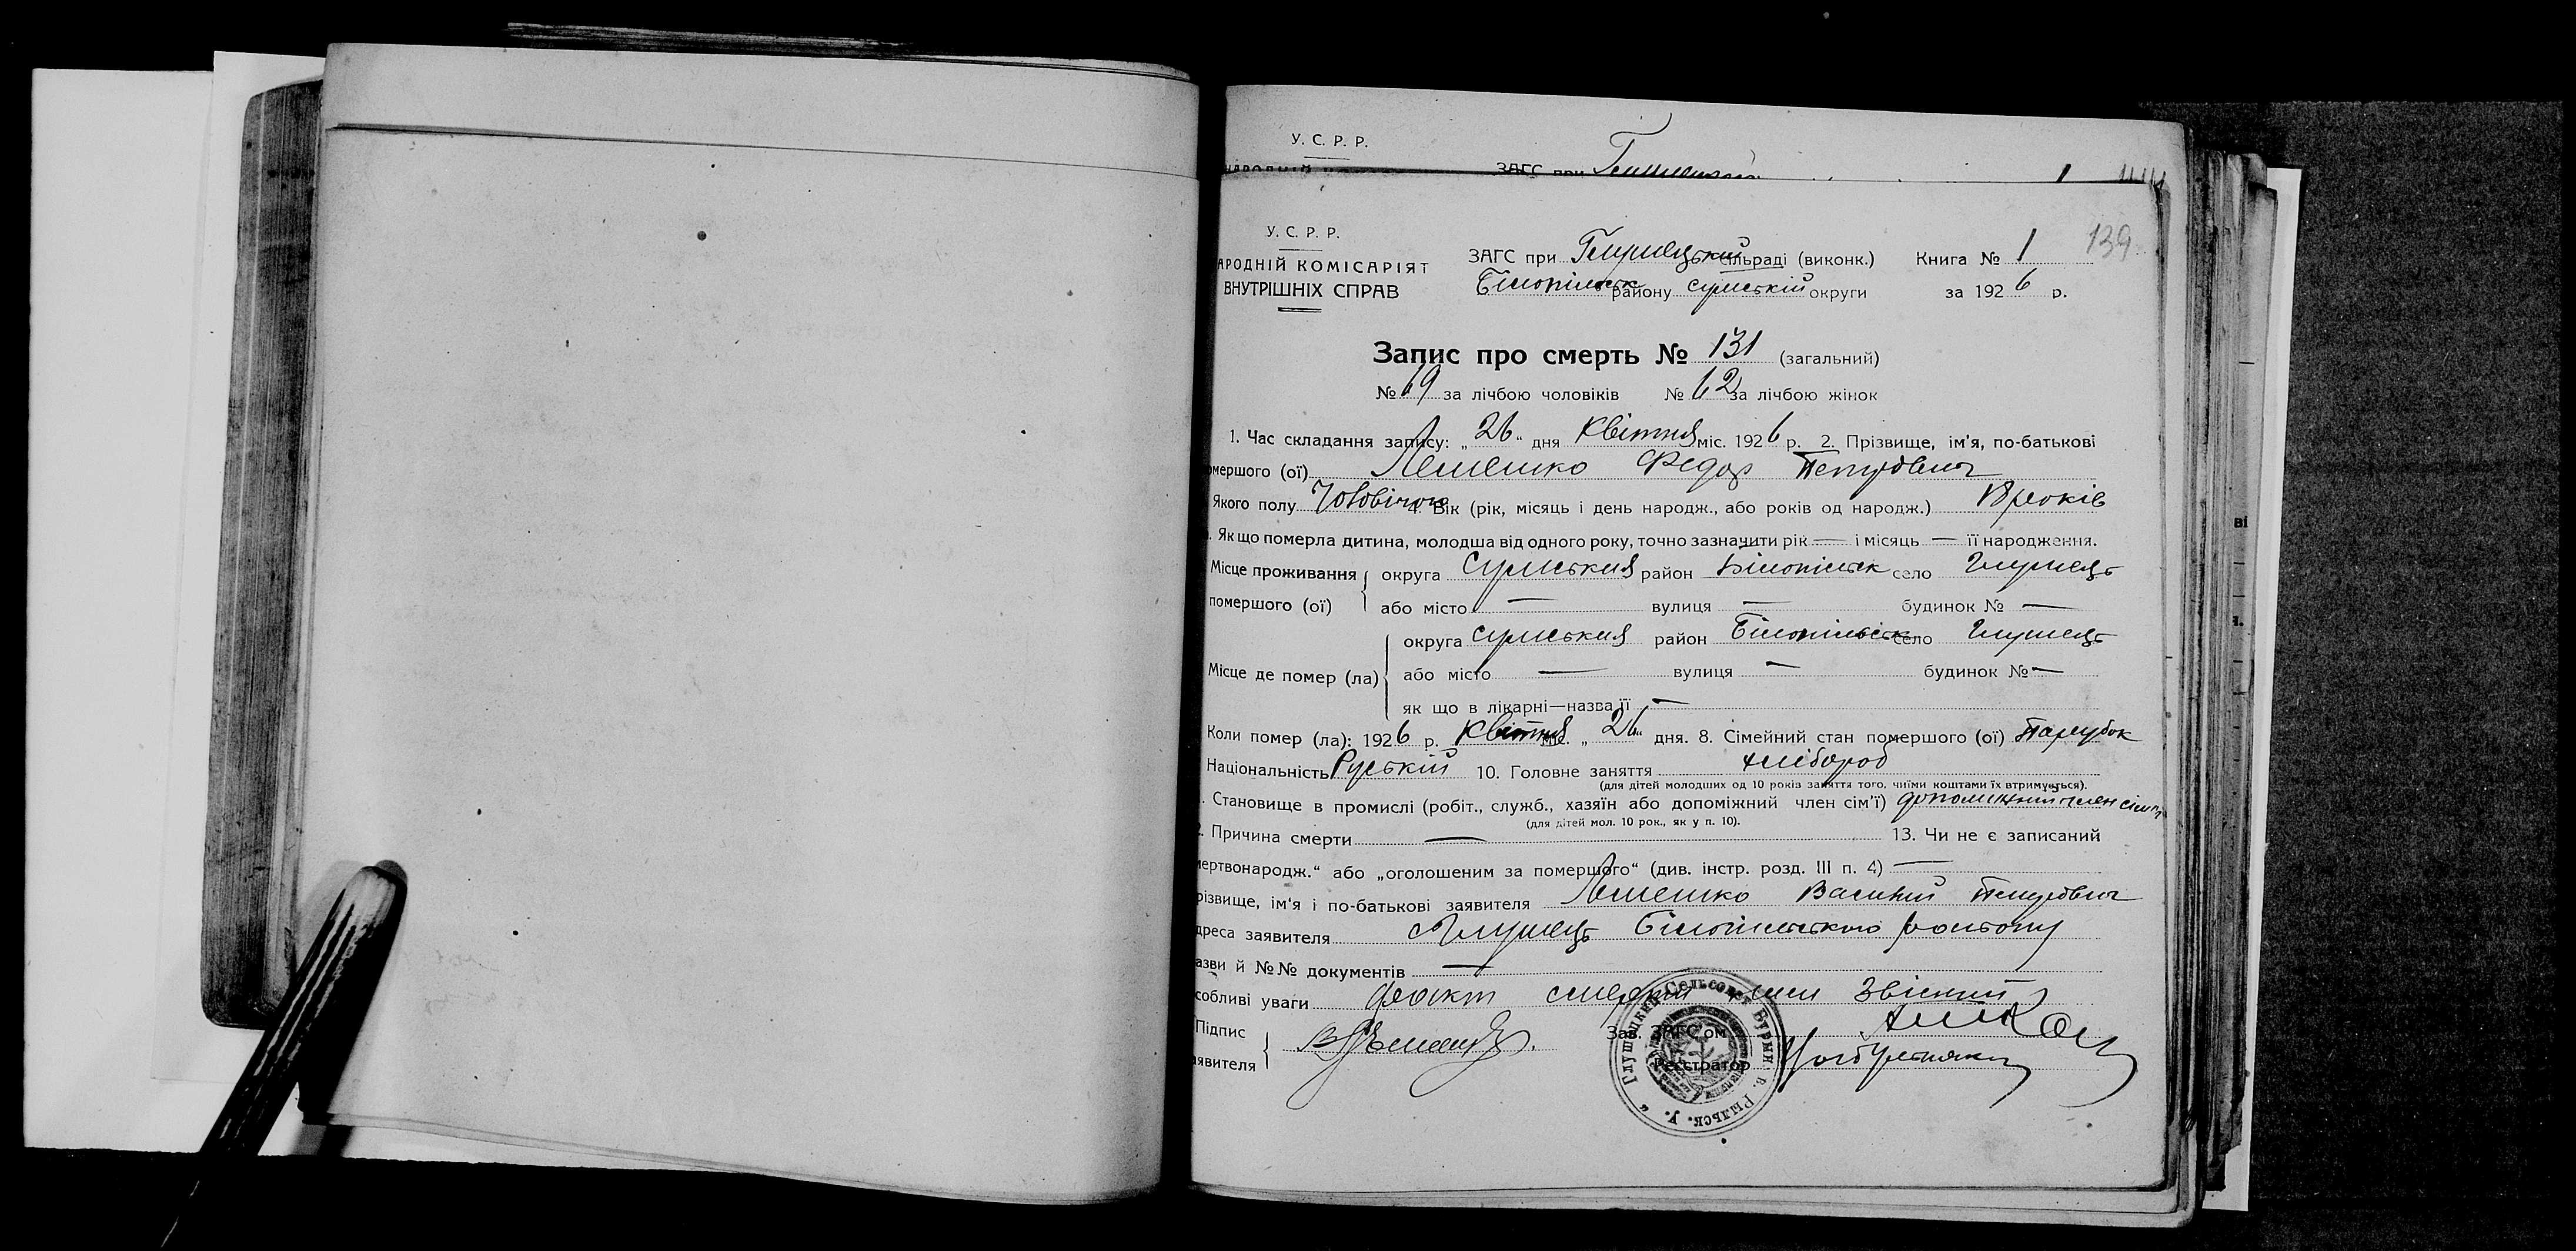 У. С. Р. Р.
ЗАГС при
У. С. Р. Р.
АРОДНІЙ КОМІСАРІЯТ
ВНУТРІШНІХ СПРАВ
ЗАГС при сільраді (виконк.) Книга № 1 139
Білопільськ району сумській округи за 1926 р.
Запис про смерть № 131 (загальний)
№ 69 за лічбою чоловіків № 62 за лічбою жінок
1. Час складання запису: „26“ дня Квітня міс. 1926 р. 2. Прізвище, ім’я, по-батькові
омершого (ої) Лемешко Федор Петрович
Якого полу Чоловічого 4. Вік (рік, місяць і день народж., або років од народж.) 18 років
. Як що померла дитина, молодша від одного року, точно зазначити рік — і місяць — її народження.
Місце проживання округа Сумська район Білопільськ село Глушець
помершого (ої) або місто — вулиця — будинок № —
округа Сумська район Білопільськ село Глушець
Місце де помер (ла) або місто — вулиця — будинок № —
як що в лікарні—назва її —
Коли помер (ла): 1926 р. Квітня міс. „26“ дня. 8. Сімейний стан помершого (ої) Парубок
Національність Руській 10. Головне заняття хлібороб
(для дітей молодших од 10 років заняття того, чиїми коштами їх втримується).
. Становище в промислі (робіт., служб., хазяїн або допоміжний член сім’ї) допоміжний член сімї
(для дітей мол. 10 рок., як у п. 10).
2. Причина смерти — 13. Чи не є записаний
мертвонародж.“ або „оголошеним за помершого“ (див. інстр. розд. III п. 4) —
різвище, ім’я і по-батькові заявителя Лемешко Василий Петрович
дреса заявителя с Глушець Білопільського району
азви й №№ документів —
собливі уваги факт смерти звісний
Підпис
аявителя
Зав. ЗАГС’ом
Реєстратор
Глушецкий Сельсовет Бурын. в. Рыльск. у.